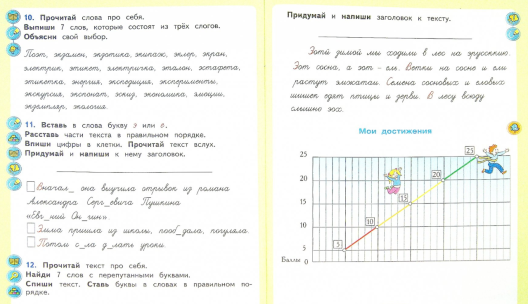 10. Прочитай слова про себя.
Выпиши 7 слов, которые состоят из трёх слогов.
Объясни свой выбор.
Поэт, экзамен, экзотика, экипаж, эклер, экран,
электрик, этикет, электричка, эталон, эстафета,
этикетка, энергия, экспедиция, эксперименты,
экскурсия, экспонат, эскиз, экономика, эмоции,
экземпляр, экология.
11. Вставь в слова букву э или е.
Расставь части текста в правильном порядке.
Впиши цифры в клетки. Прочитай текст вслух.
Придумай и напиши к нему заголовок.
Вначал_ она выучила отрывок из романа
Александра Серг_евича Пушкина
«Евг_ний Он_гин»
Зима пришла из школы, пооб_дала, погуляла.
Потом с_ла д_лать уроки.
12. Прочитай текст про себя.
Найди 7 слов с перепутанными буквами.
Спиши текст. Ставь буквы в словах в правильном по-
рядке.
Придумай и напиши заголовок к тексту.
зимой мы ходили в лес на
Зот сосна, а зот - ель. на сосне и ели
растут Семена сосновых и еловых
шишек едят птицы и В лесу всюду
слышно эхо.
Мои достижения
25
20
15
10
5
Баллы 0
5
10
15
20
25